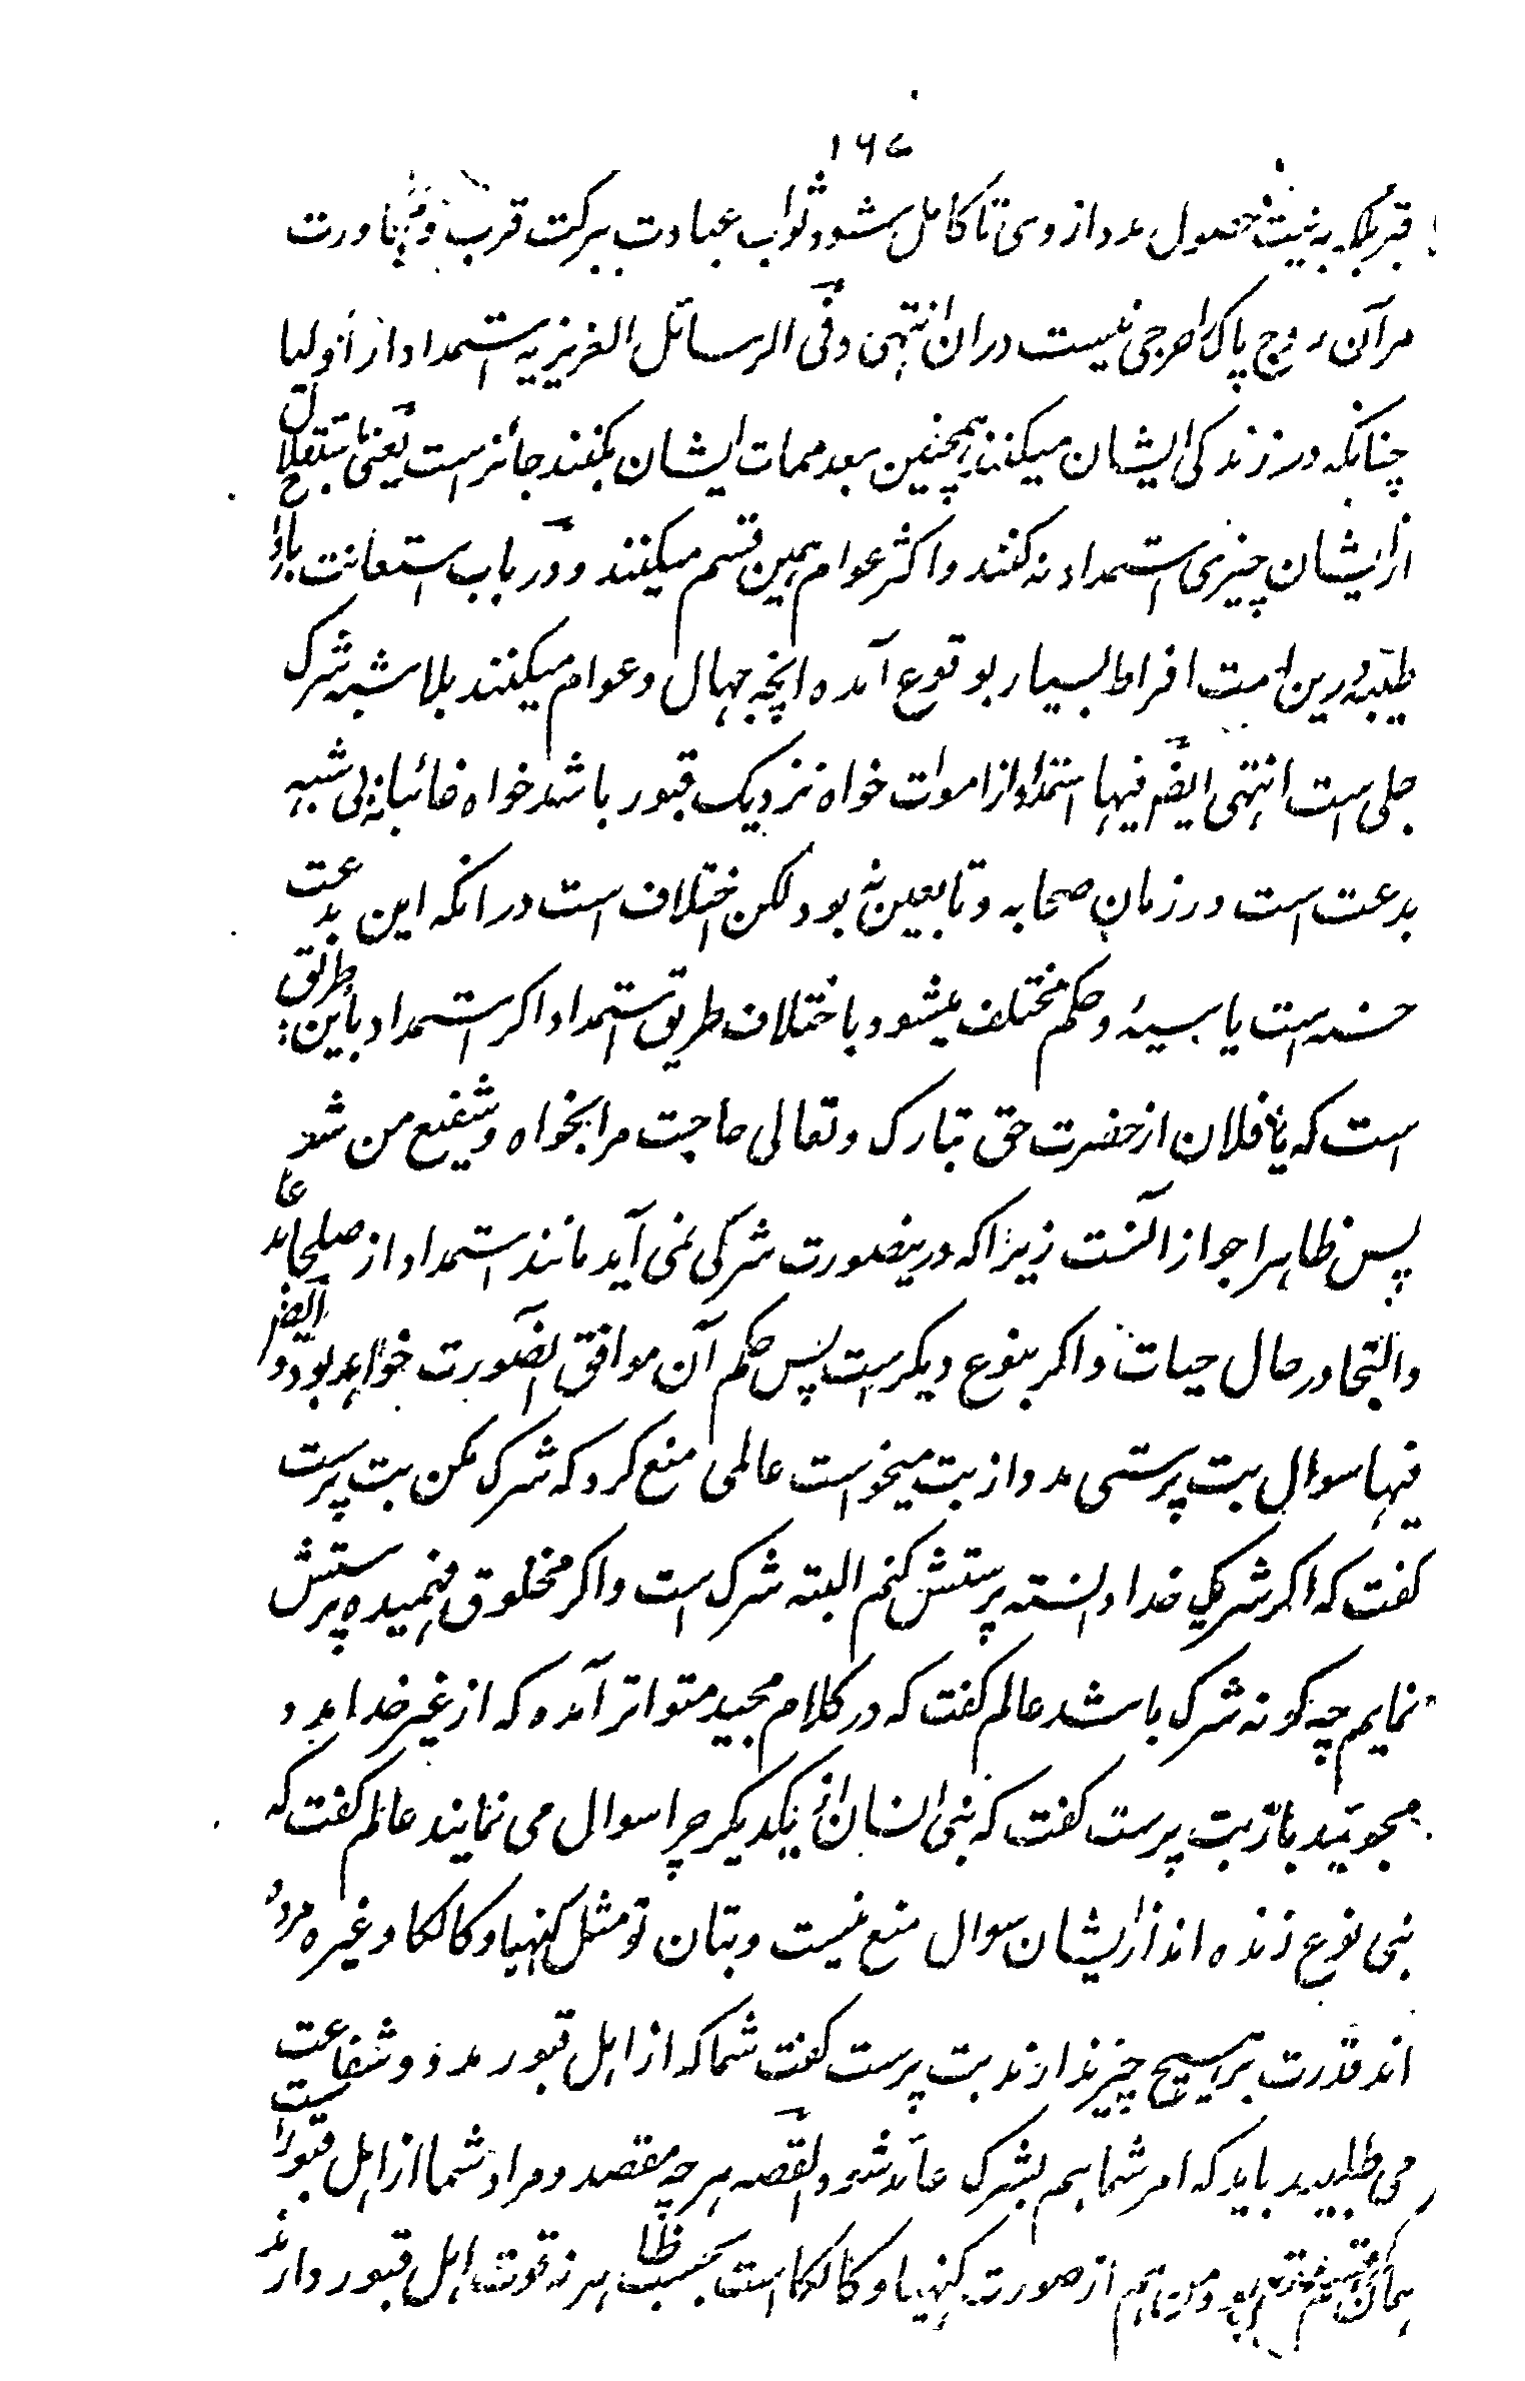 ۱۶۷
قبر بلکه به نیت حصول مدد از وی تا کامل بشود ثواب عبادت ببرکت قرب و مجاورت
مر آن روح پاک را حرجی نیست دران انتهی و فی الرسائل العزیزیه استمداد از اولیا
چنانکه در زندگی ایشان میکنند همچنین بعد ممات ایشان بکنند جائز است یعنی باستقلال
از ایشان چیزی استمداد نه کنند و اکثر عوام همین قسم میکنند و در باب استعانت بارواح
طیبه درین امت افراط بسیار بوقوع آمده آنچه جهال و عوام میکنند بلا شبه شرک
جلی است انتهی ایضا فیها استمداد از اموات خواه نزدیک قبور باشد خواه غائبانه بی شبه
بدعت است در زمان صحابه و تابعین نه بود لکن اختلاف است در انکه این بدعت
حسنه است یا سیئه و حکم مختلف میشود باختلاف طریق استمداد اگر استمداد باین طریق
است که یا فلان از حضرت حق تبارک و تعالی حاجت مرا بخواه و شفیع من شو
پس ظاهرا جواز آنست زیرا که درینصورت شرکی نمی آید مانند استمداد از صلحا بدعا
و التجا در حال حیات و اگر بنوع دیگر است پس حکم آن موافق انصورت خواهد بود و ایضا
فیها سوال بت پرستی مدد از بت میخواست عالمی منع کرد که شرک مکن بت پرست
گفت که اگر شریک خدا دانسته پرستش کنم البته شرک است و اگر مخلوق فهمیده پرستش
نمایم چه گونه شرک باشد عالم گفت که در کلام مجید متواتر آمده که از غیر خدا مدد
مجوئید باز بت پرست گفت که بنی انسان از یکدیگر چرا سوال می نمایند عالم گفت که
بنی نوع زنده اند از ایشان سوال منع نیست و بتان تو مثل کنهیا و کالکا وغیره مرده
اند قدرت بر هیچ چیز ندارند بت پرست گفت شما که از اهل قبور مدد و شفاعت
می طلبید باید که امر شما هم بشرک عائد شود القصه هر چه مقصد و مراد شما از اهل قبور است
همان قسم من هم از صورت کنهیا و کالکا است بحسب ظاهر نه قوت اهل قبور دارند